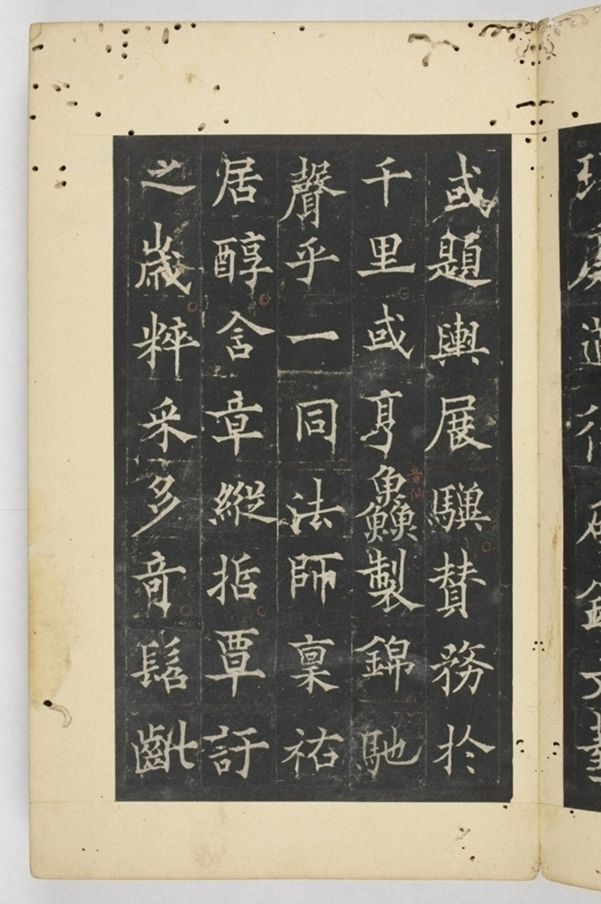 或題輿展驥賛務於
千里或亨鱻製錦馳
聲乎一同法師稟祐
居醇含章縱哲覃訏
之歲粹采多奇髫齔
音仙